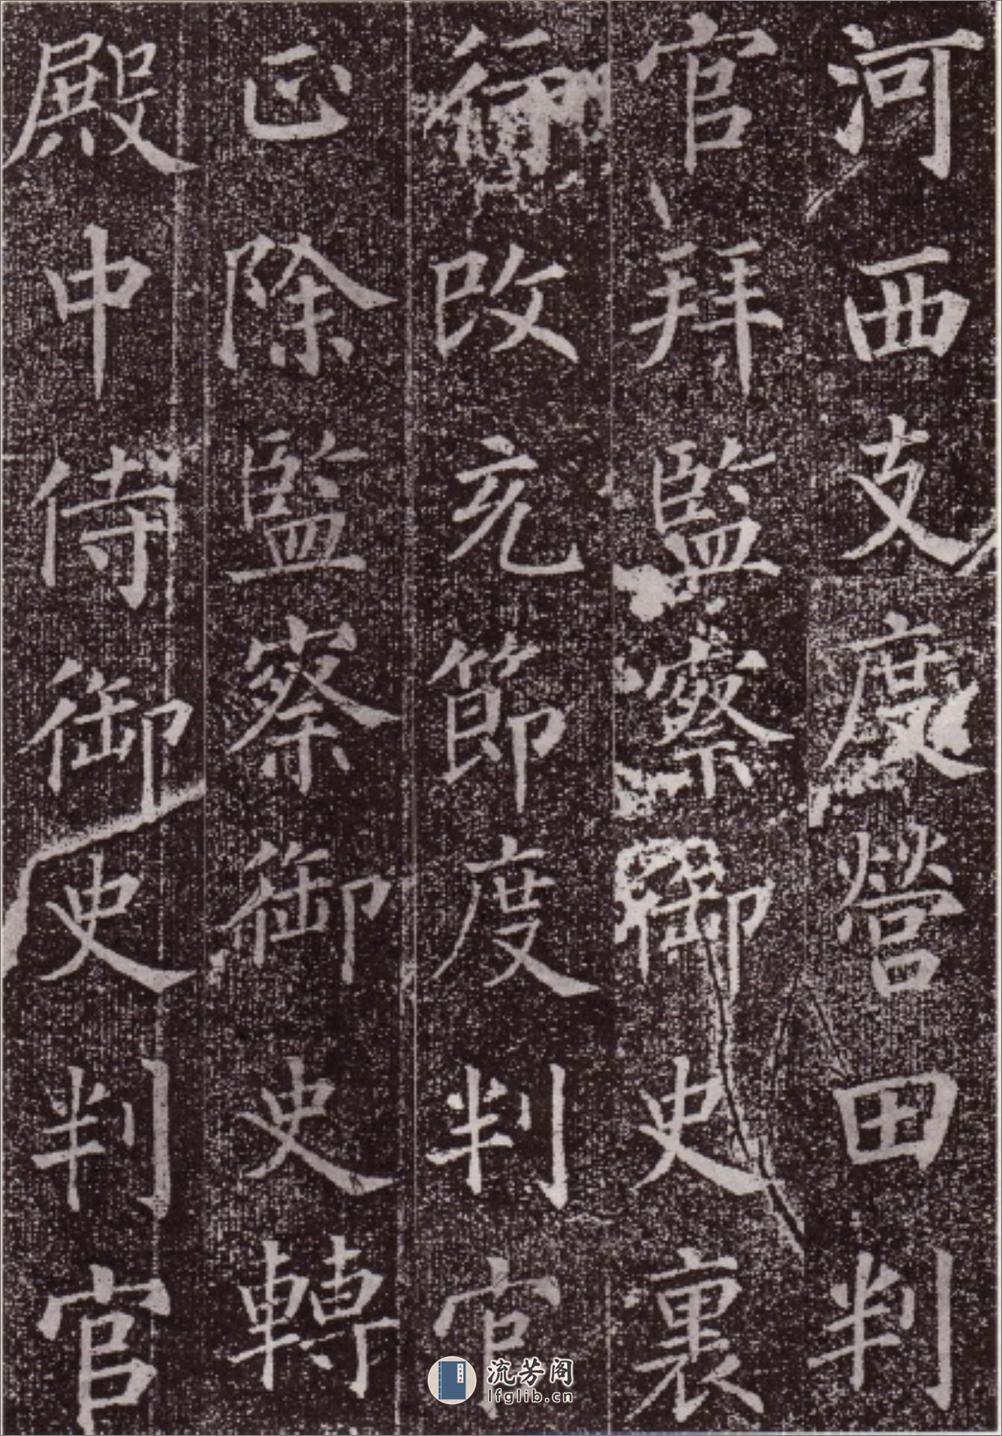 河西支度營田判
官拜監察御史裏
行改充節度判官
正除監察御史轉
殿中侍御史判官
流芳阁
lfglib.cn